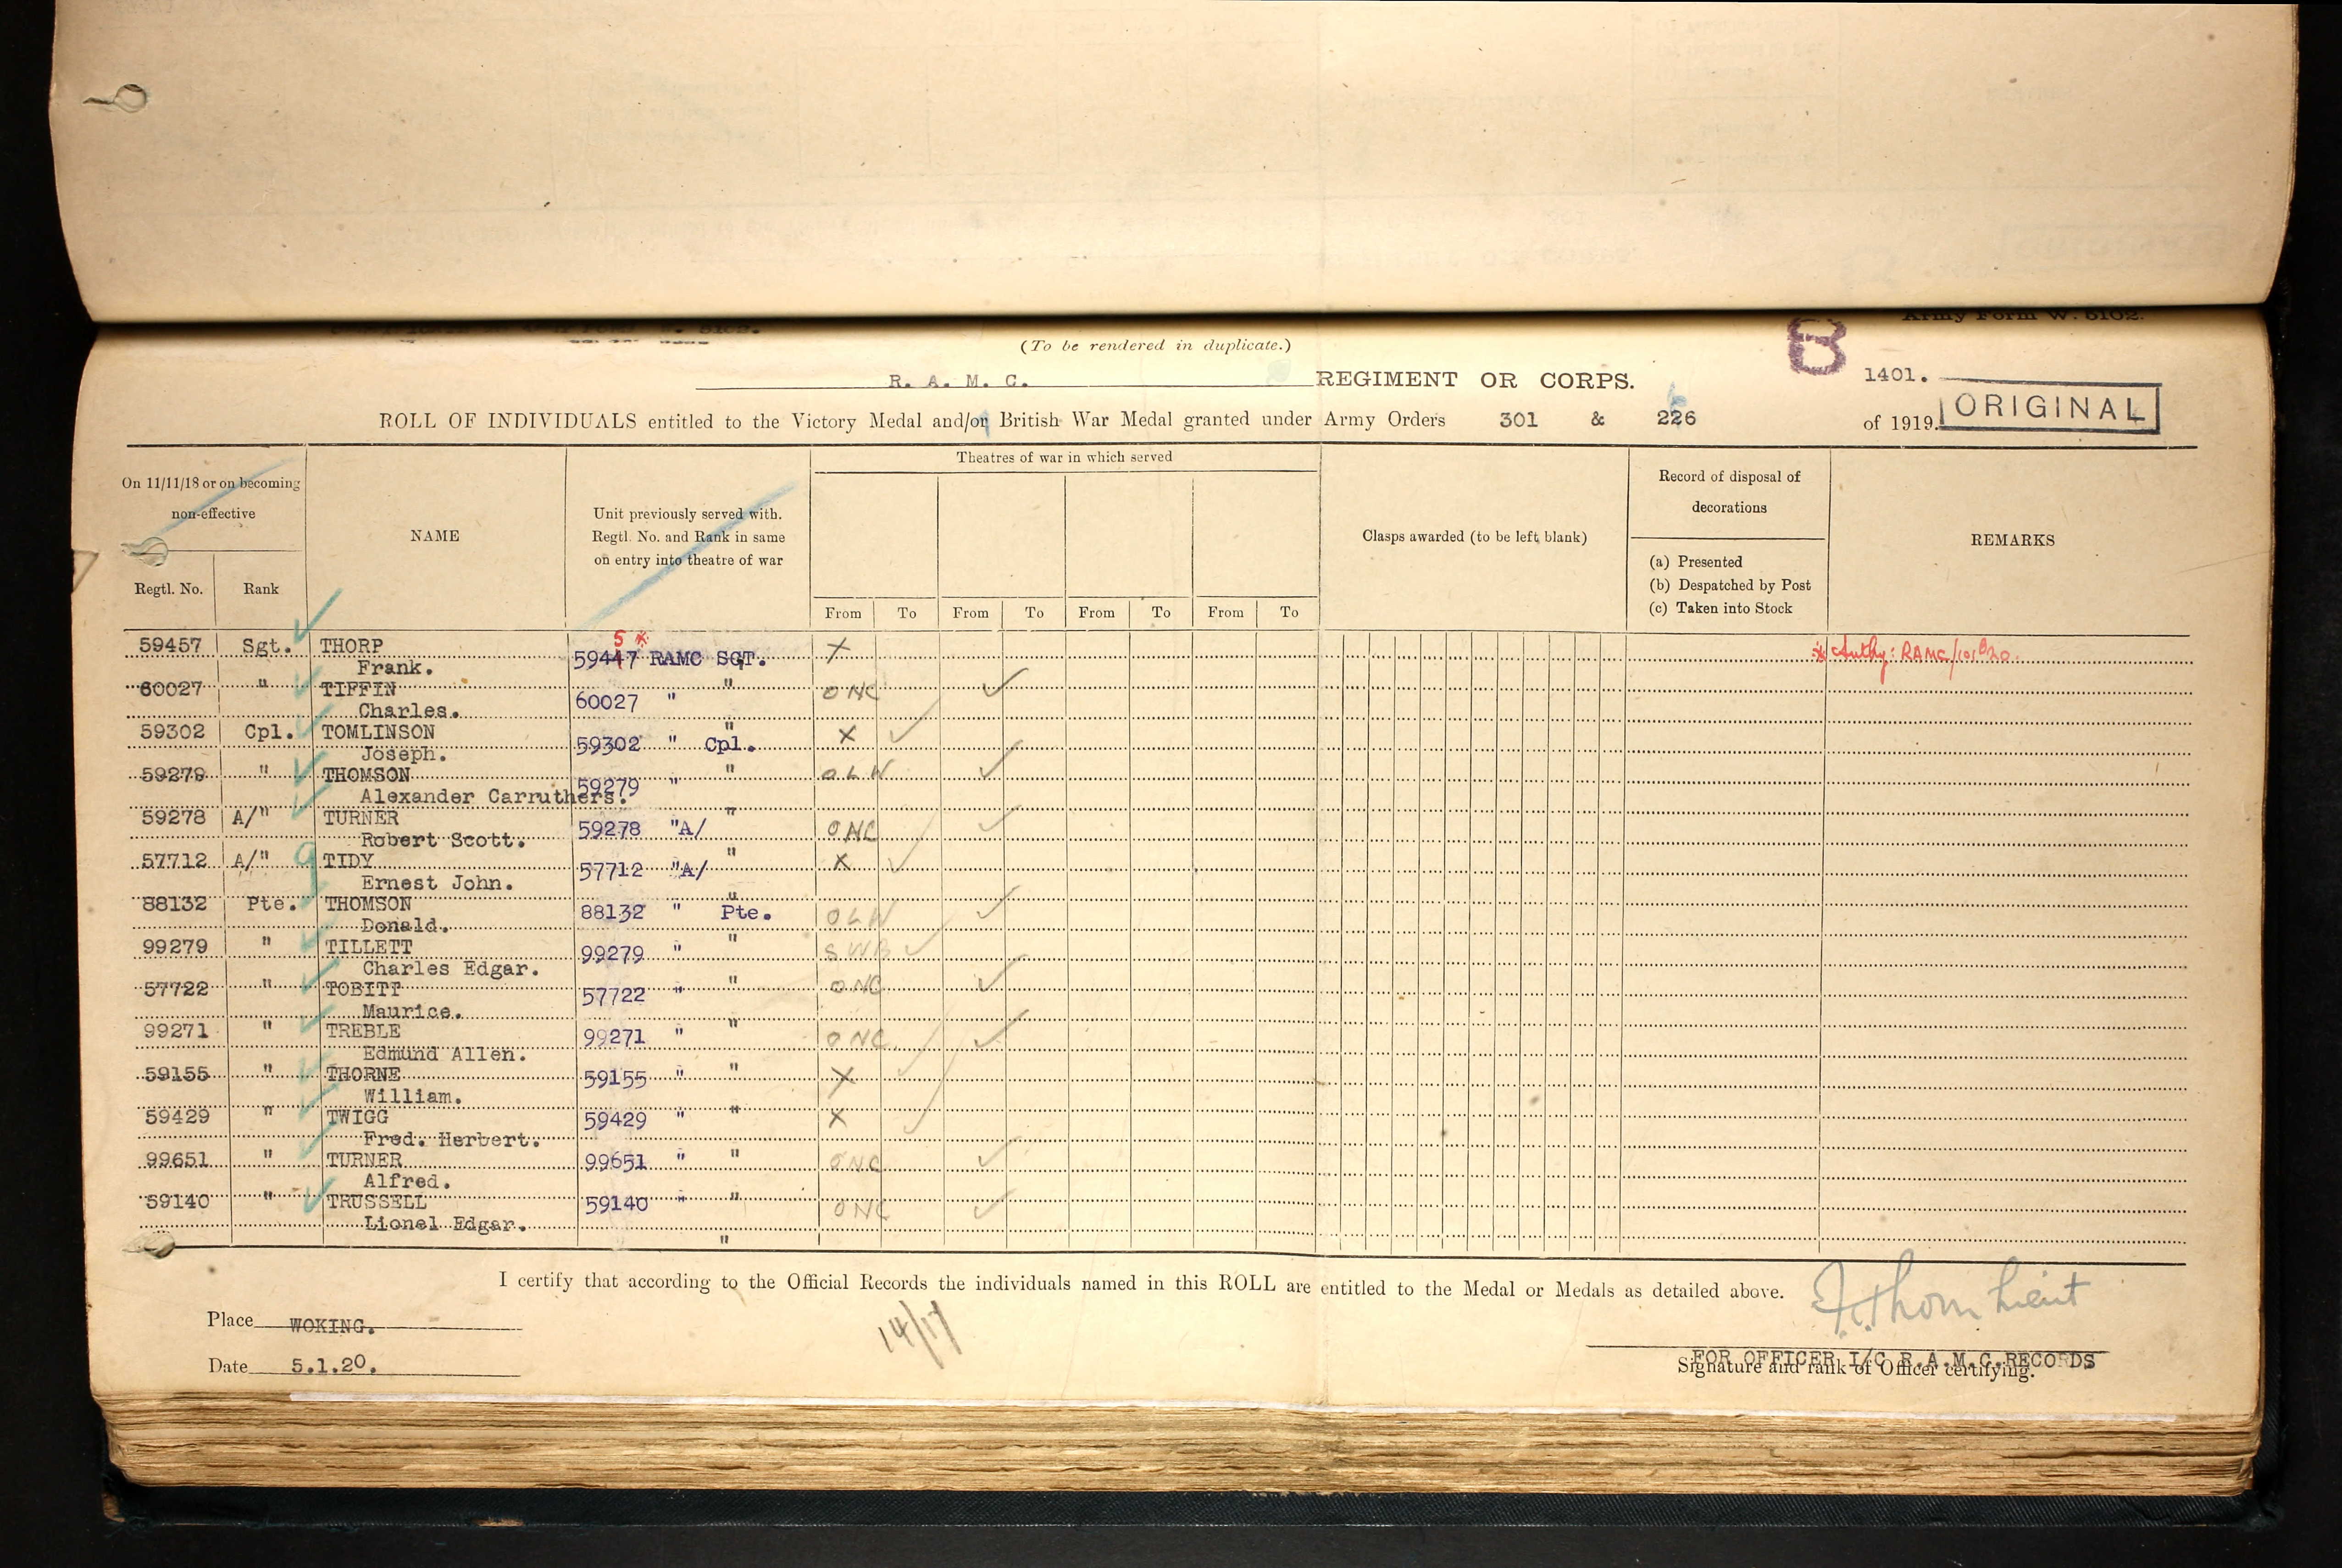 Army Form W. 5102.
(To be rendered in duplicate.)
B
R. A. M. C. REGIMENT OR CORPS. 1401.
ROLL OF INDIVIDUALS entitled to the Victory Medal and/or British War Medal granted under Army Orders 301 & 266 of 1919.
ORIGINAL
On 11/11/18 or on becoming non-effective
Regtl. No. Rank
NAME
Unit previously served with. Regtl. No. and Rank in same on entry into theatre of war
Theatres of war in which served
From To From To From To From To
Clasps awarded (to be left blank)
Record of disposal of decorations
(a) Presented
(b) Despatched by Post
(c) Taken into Stock
REMARKS
5 *
59457 Sgt. THORP 59447 RAMC SGT. X * Authy: RAMC/
Frank.
60027 " TIFFIN 60027 " " ONC ✓
Charles.
59302 Cpl. TOMLINSON 59302 " Cpl. " X ✓
Joseph.
59279 " THOMSON 59279 " " OLW ✓
Alexander Carruthers.
59278 A/" TURNER 59278 "A/ " ONC ✓
Robert Scott.
57712 A/" TIDY 57712 "A/ " X ✓
Ernest John.
88132 Pte. THOMSON 88132 " Pte. " OLW ✓
Donald.
99279 " TILLETT 99279 " " SWB ✓
Charles Edgar.
57722 " TOBITT 57722 " " ONC ✓
Maurice.
99271 " TREBLE 99271 " " ONC ✓
Edmund Allen.
59155 " THORNE 59155 " " X ✓
William.
59429 " TWIGG 59429 " " X ✓
Fred. Herbert.
99651 " TURNER 99651 " " ONC ✓
Alfred.
59140 " TRUSSELL 59140 " " ONC ✓
Lionel Edgar.
"
I certify that according to the Official Records the individuals named in this ROLL are entitled to the Medal or Medals as detailed above.
Thom Lieut
Place WOKING.
14/17
FOR OFFICER I/C R.A.M.C. RECORDS
Date 5.1.20.
Signature and rank of Officer certifying.